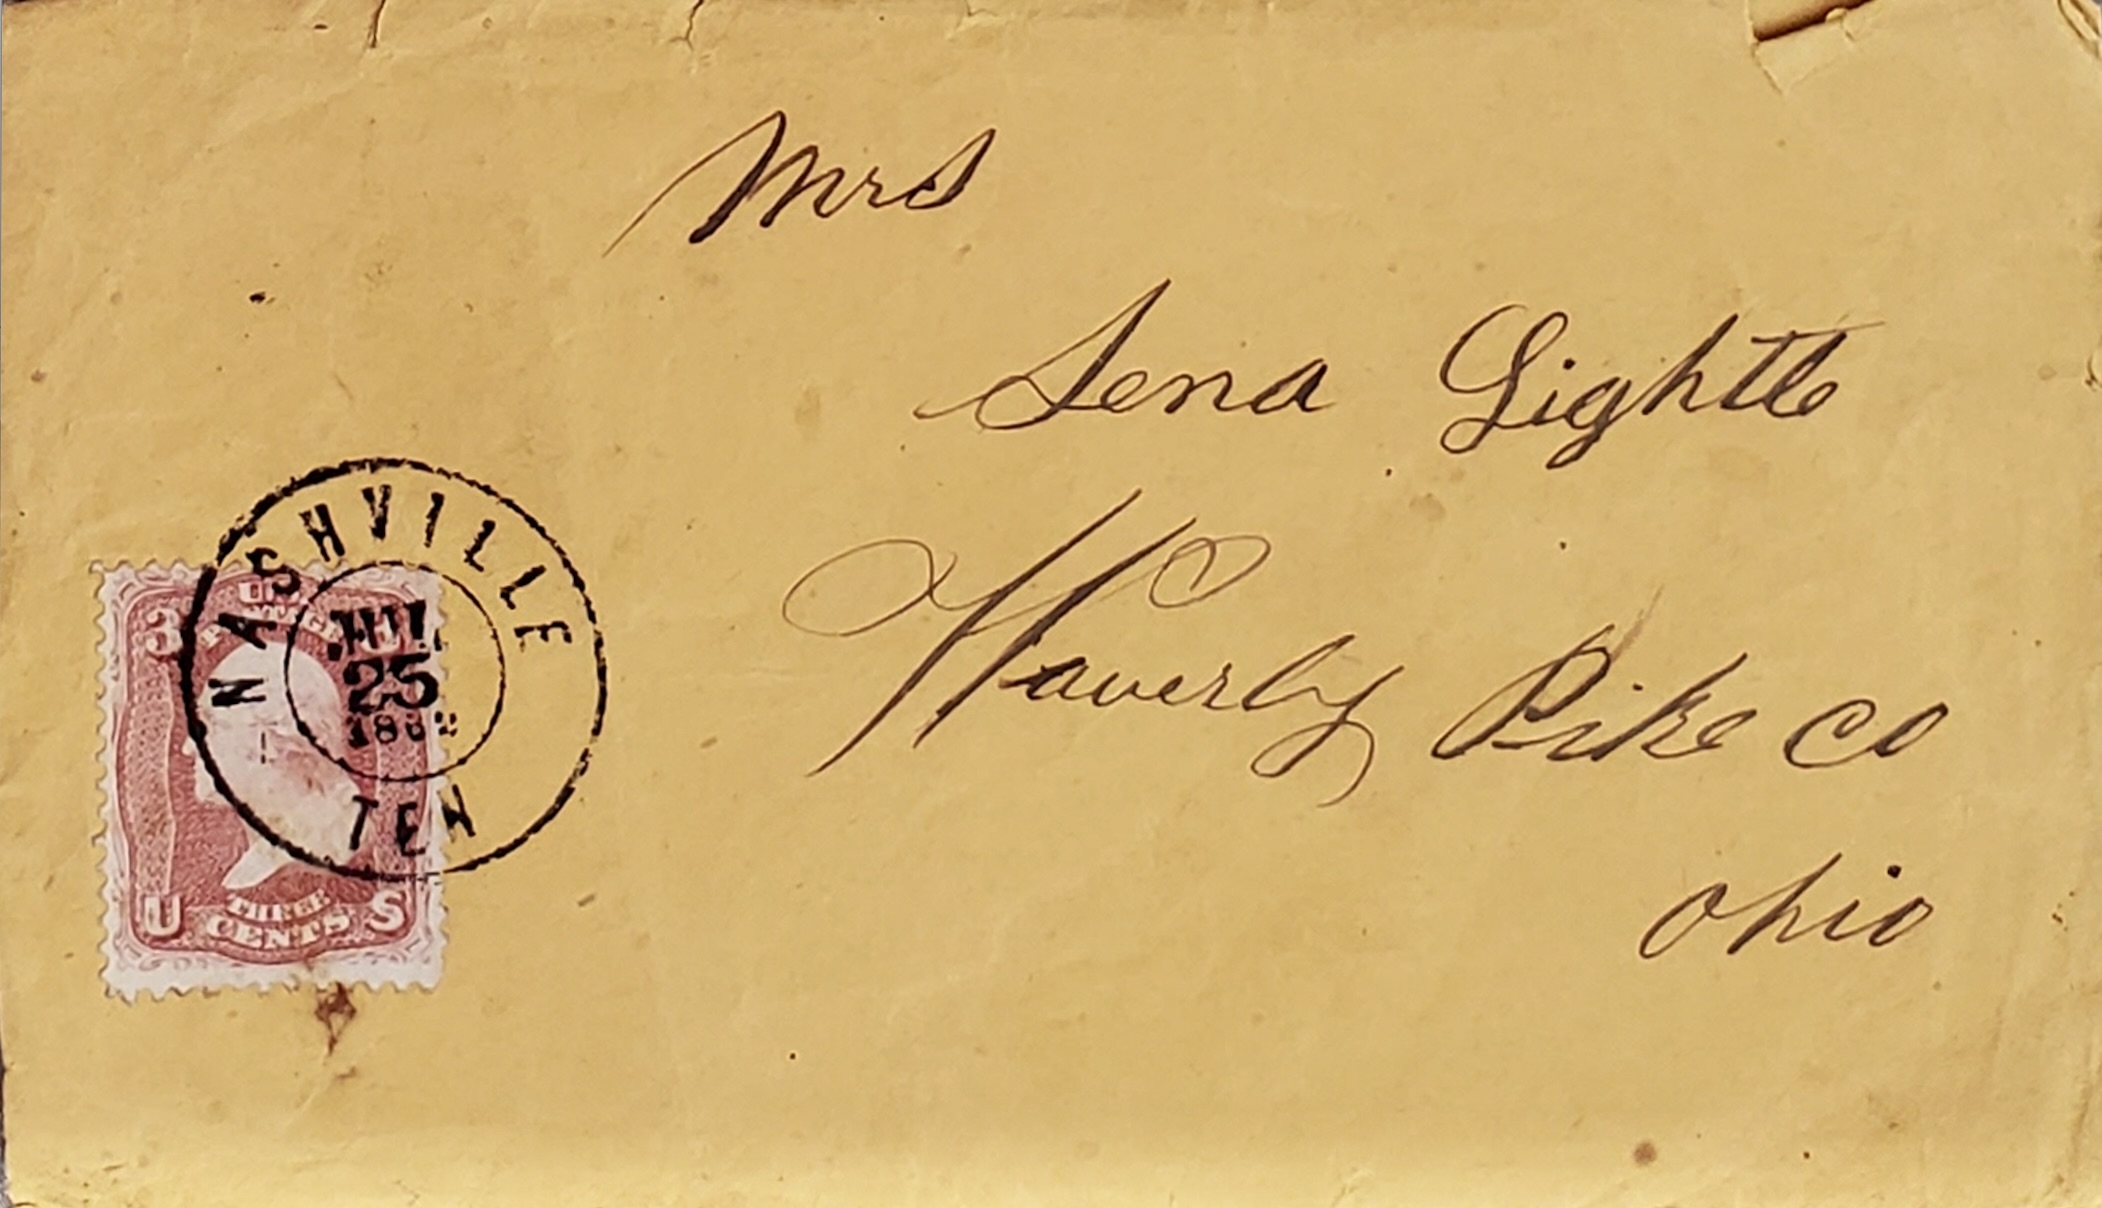 Mrs
Sena Lightle
Waverly Pike co
ohio
NASHVILLE
JUL
25
TEN
3
U THREE S
CENTS